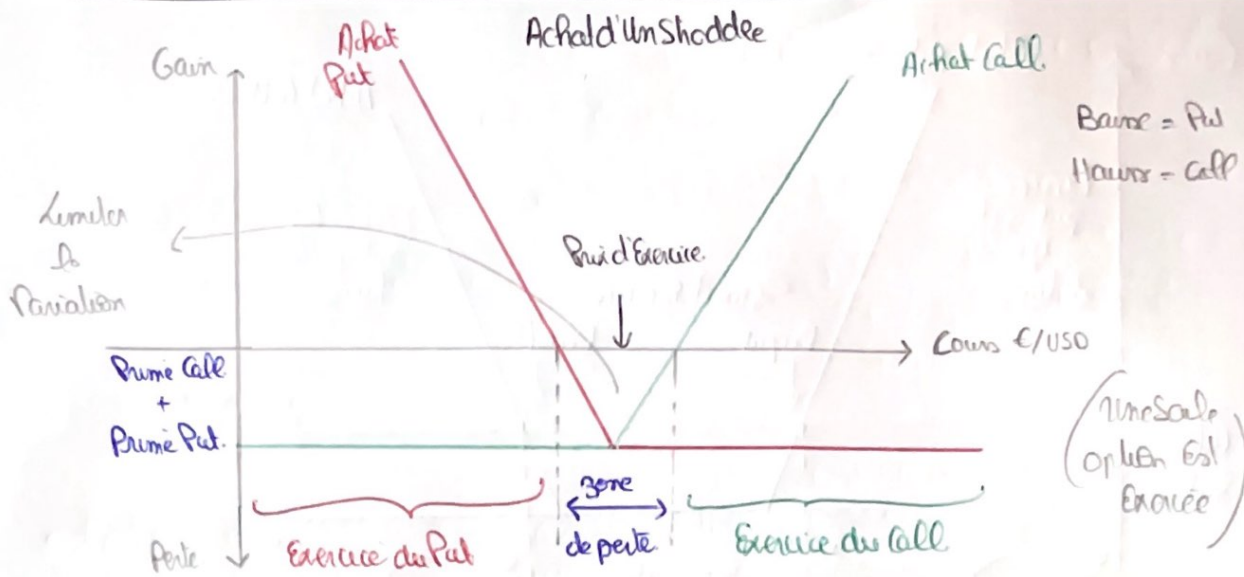 Achat d'Un Straddle
Gain
Achat
Put
Achat Call
Baisse = Put
Hausse = Call
Limiter
la
Variation
Prix d'Exercice
Cours €/USD
Prime Call
+
Prime Put.
(Une Seule
option Est
Exercée)
zone
de perte
Perte
Exercice du Put
Exercice du Call